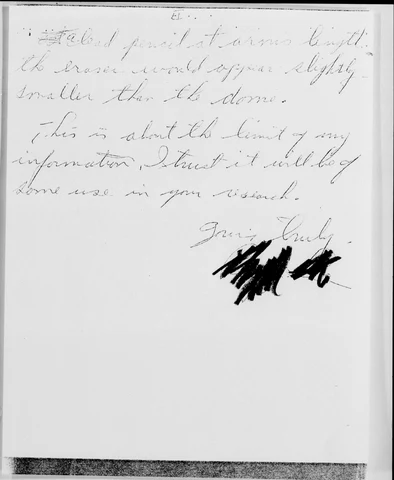 a lead pencil at arms length
the eraser would appear slightly
smaller than the dome.
This is about the limit of my
information, I trust it will be of
some use in your research.
Yours Truly.